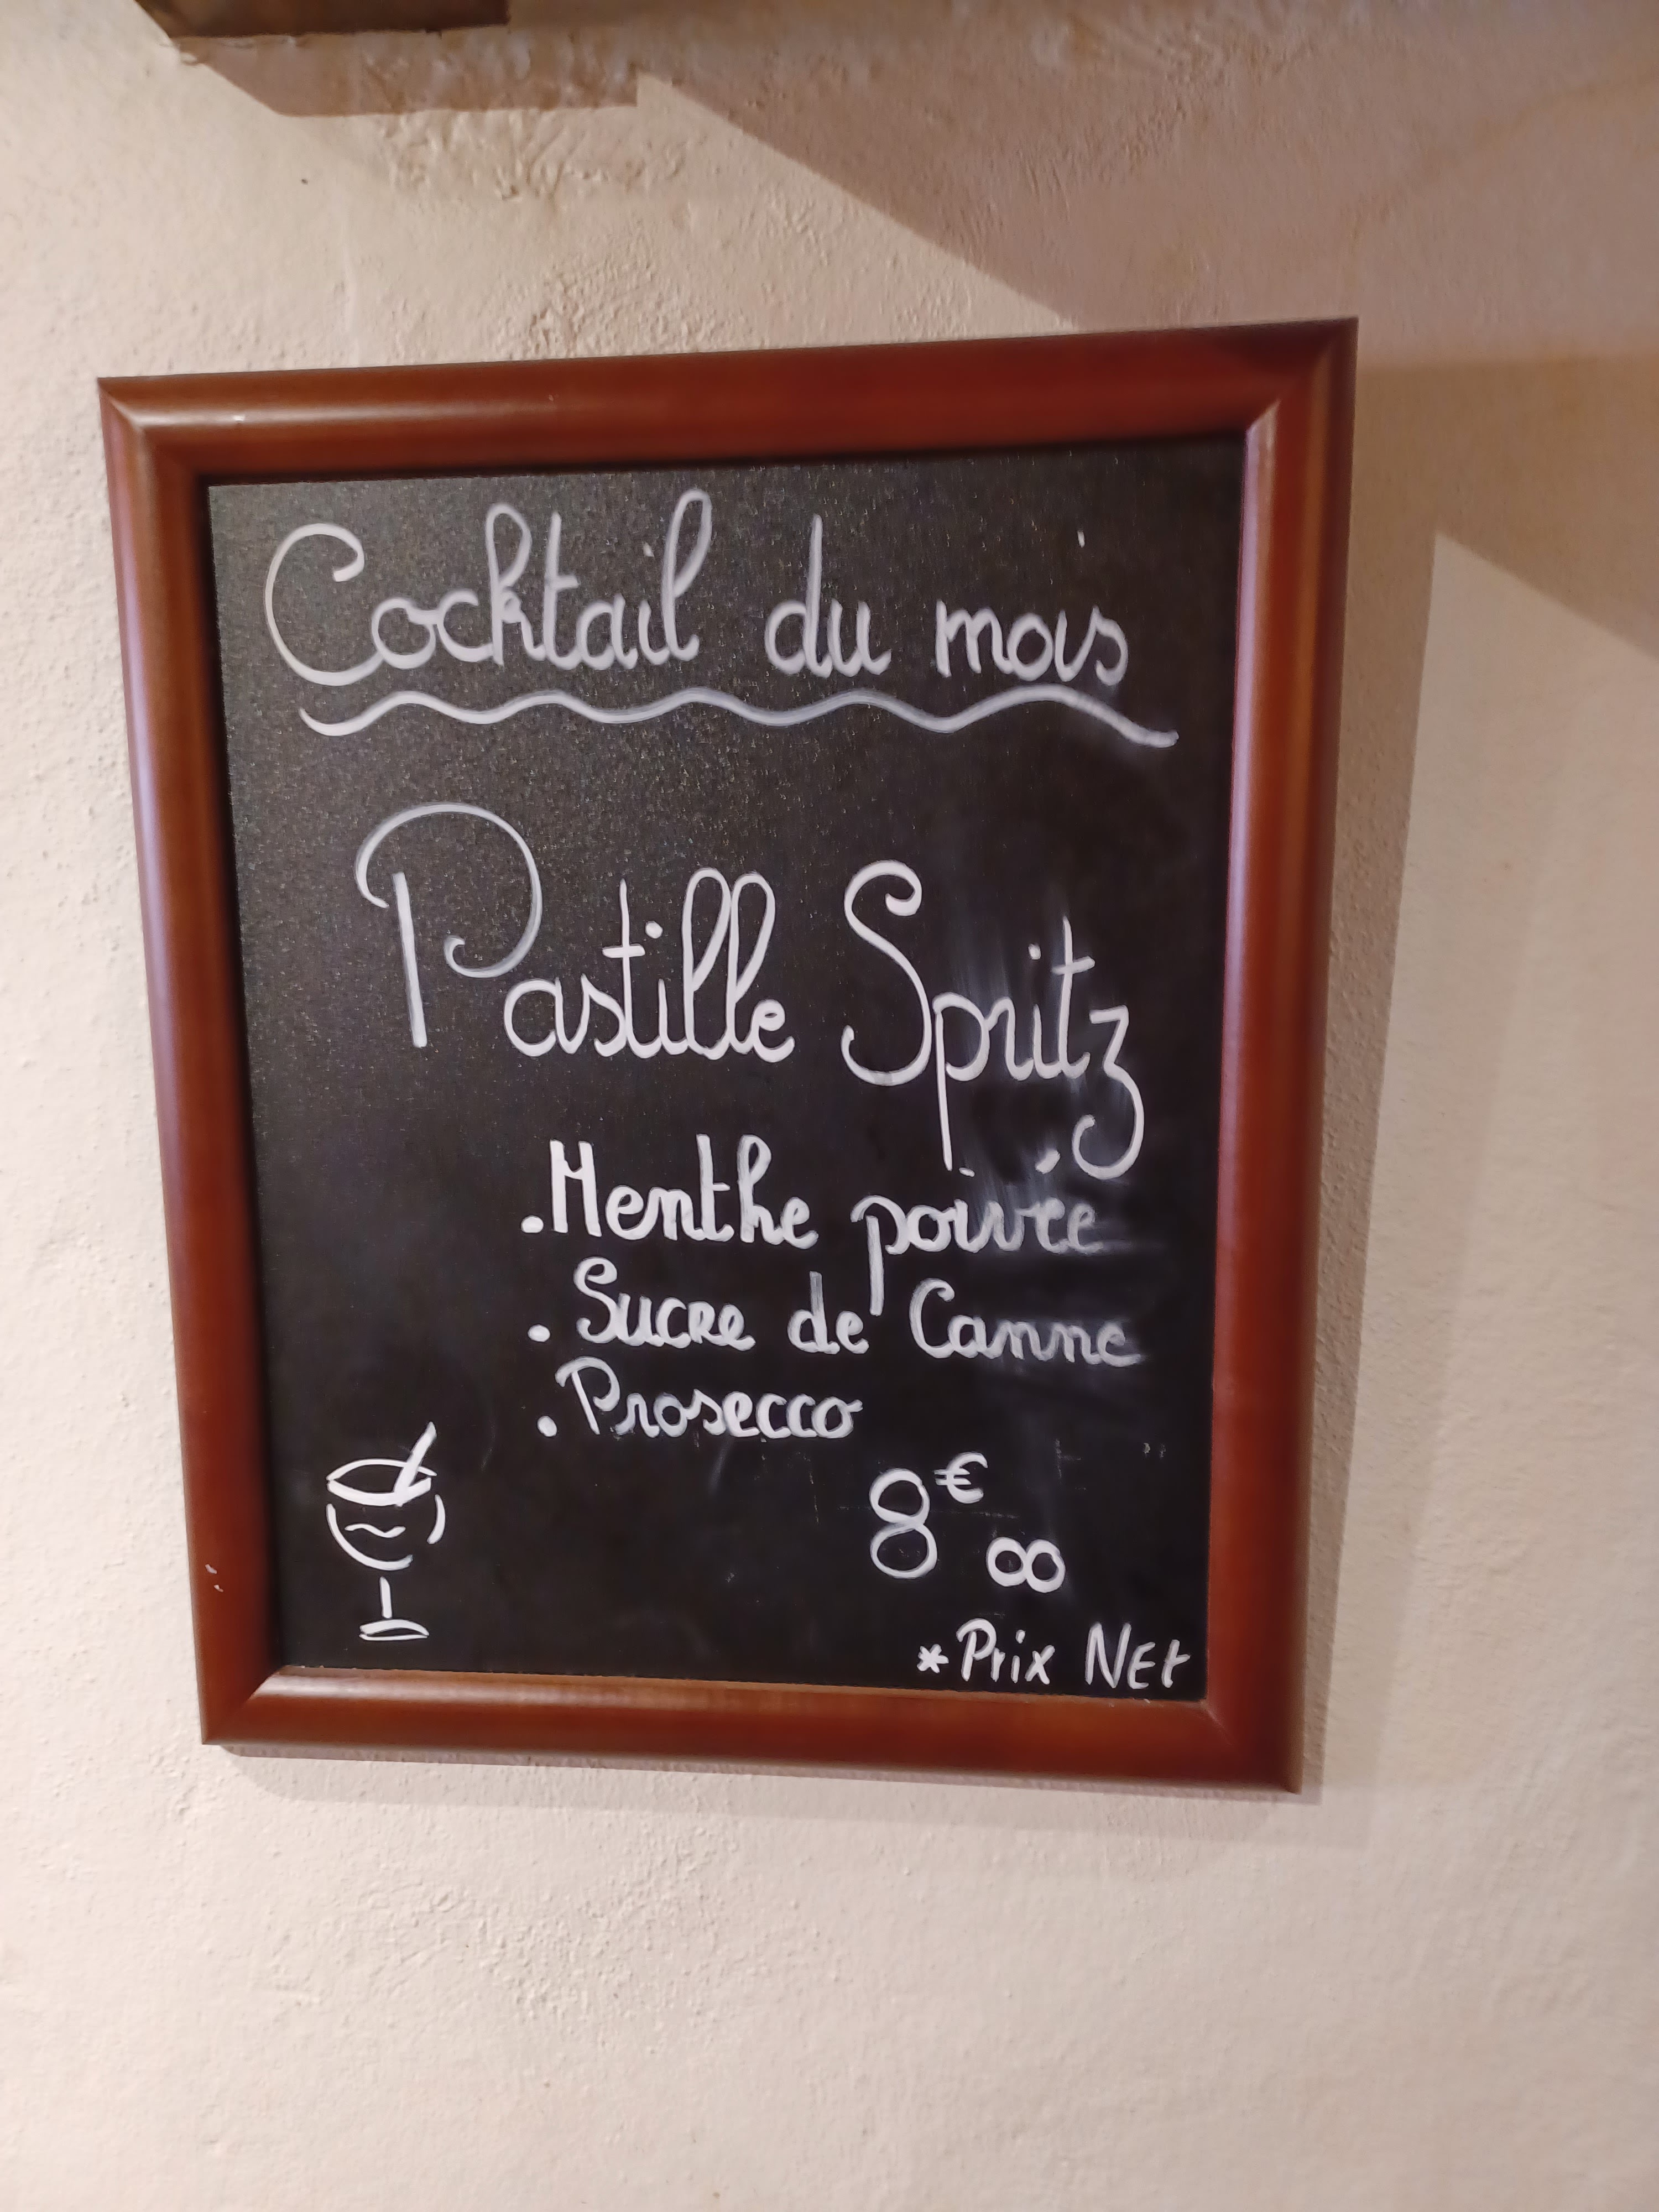 Cocktail du mois
Pastille Spritz
.Menthe poivrée
. Sucre de Canne
. Prosecco
8€00
*Prix NEt